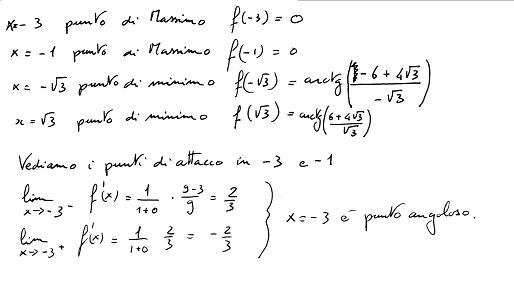 x=-3 punto di Massimo f(-3) = 0
x = -1 punto di Massimo f(-1) = 0
x = -√3 punto di minimo f(-√3) = arctg((-6+4√3)/(-√3))
x = √3 punto di minimo f(√3) = arctg((6+4√3)/√3)
Vediamo i punti di attacco in -3 e -1
lim x→-3⁻ f'(x) = 1/(1+0) · (9-3)/9 = 2/3
lim x→-3⁺ f'(x) = 1/(1+0) 2/3 = -2/3
} x=-3 è punto angoloso.